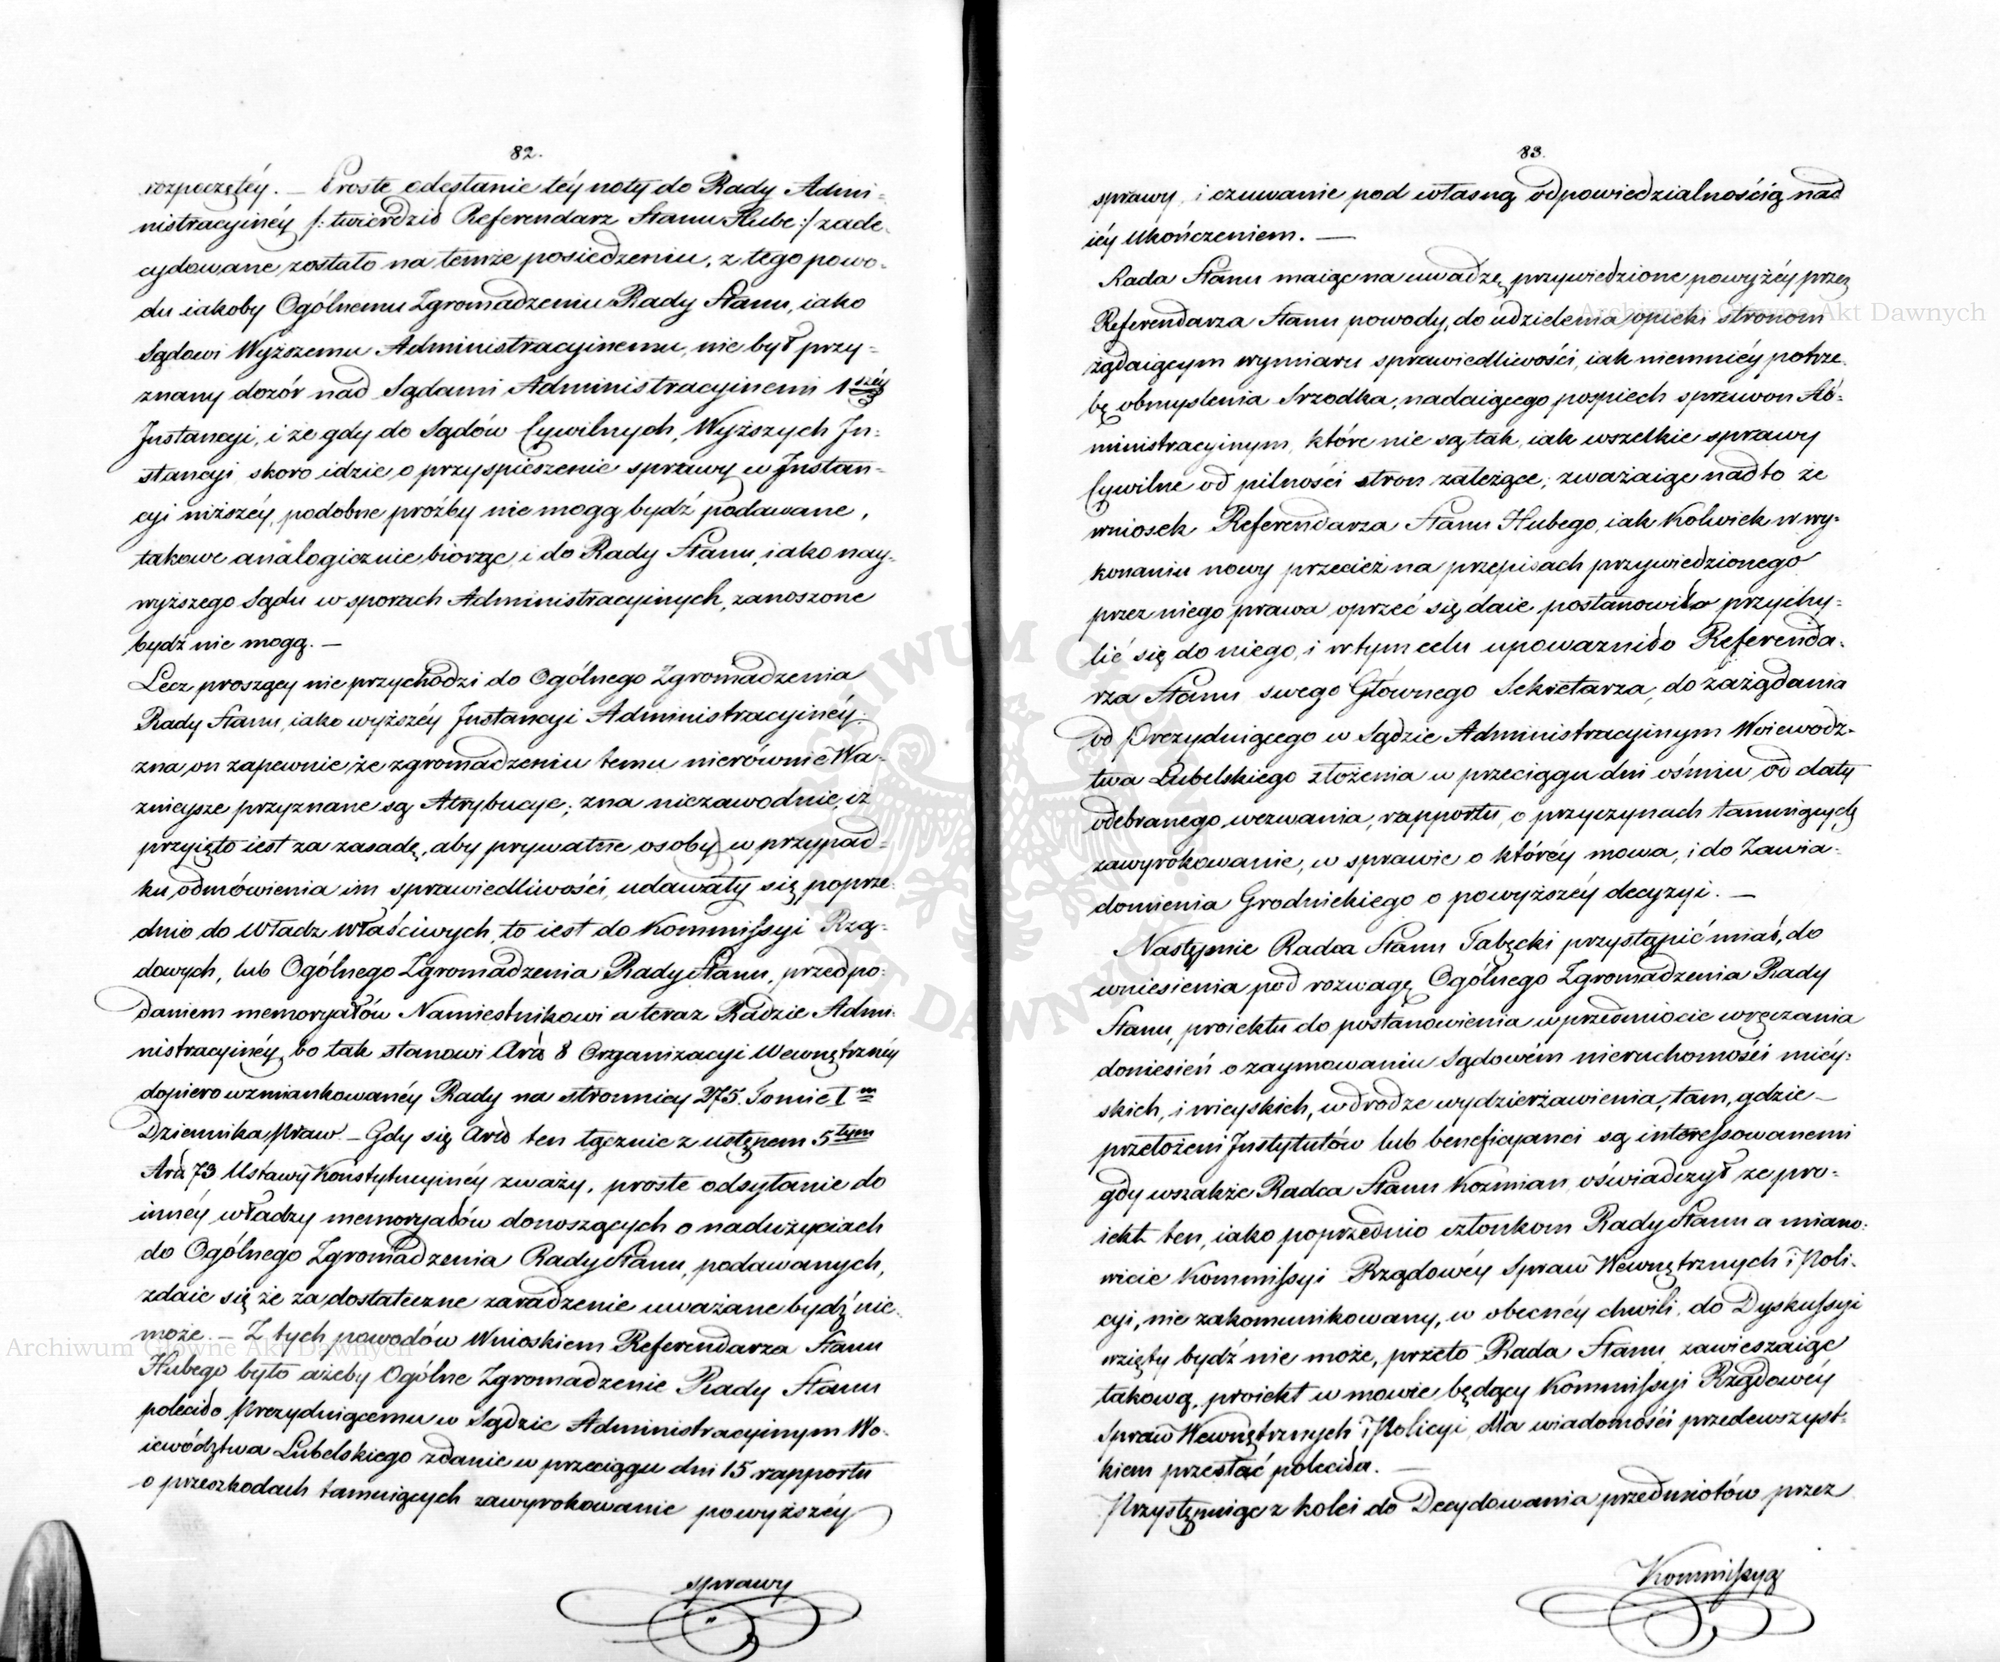 82.
rozpoczętéy. — Proste odesłanie téy noty do Rady Admi-
nistracyinéy /: twierdził Referendarz Stanu Hube :/ zade-
cydowane zostało na temże posiedzeniu, z tego powo-
du iakoby Ogólnemu Zgromadzeniu Rady Stanu, iako
Sądowi Wyższemu Administracyinemu, nie był przy-
znany dozór nad Sądami Administracyinemi 1széy
Instancyi, i że gdy do Sądów Cywilnych, Wyższych In-
stancyi skoro idzie o przyspieszenie sprawy w Instan-
cyi niższéy, podobne prożby nie mogą bydź podawane,
takowe analogicznie biorąc, i do Rady Stanu, iako nay-
wyższego Sądu w sporach Administracyinych, zanoszone
bydź nie mogą. —
Lecz proszący nie przychodzi do Ogólnego Zgromadzenia
Rady Stanu, iako wyższéy Instancyi Administracyinéy;
zna on zapewnie, że zgromadzeniu temu nierównie Wa-
znieysze przyznane są Atrybucye; zna niezawodnie, iż
przyięto iest za zasadę, aby prywatne osoby, w przypad-
ku odmówienia im sprawiedliwości, udawały się poprze-
dnio do Władz właściwych, to iest do Kommissyi Rzą-
dowych, lub Ogólnego Zgromadzenia Rady Stanu, przed po-
daniem memoryałów Namiestnikowi a teraz Radzie Admi-
nistracyinéy, bo tak stanowi Art 8 Organizacyi Wewnętrznéy
dopiero wzmiankowanéy Rady na stronnicy 275. Tomie Im
Dziennika Praw. — Gdy się Art ten łącznie z ustępem 5tym
Art 73 Ustawy Konstytucyinéy zważy, proste odsyłanie do
innéy władzy memoryałów donoszących o nadużyciach
do Ogólnego Zgromadzenia Rady Stanu, podawanych,
zdaie się że za dostateczne zaradzenie uważane bydź nie
może. — Z tych powodów Wnioskiem Referendarza Stanu
Hubego było ażeby Ogólne Zgromadzenie Rady Stanu
poleciło Prezyduiącemu w Sądzie Administracyinym Wo-
iewództwa Lubelskiego zdanie w przeciągu dni 15 rapportu
o przeszkodach tamuiących zawyrokowanie powyższéy
sprawy
83.
sprawy, i czuwanie pod własną odpowiedzialnością nad
iéy Ukończeniem. —
Rada Stanu maiąc na uwadze, przywiedzione powyżéy przez
Referendarza Stanu powody, do udzielenia opieki stronom
żądaiącym wymiaru sprawiedliwości, iak niemniéy potrze-
bę obmyslenia Srzodka, nadaiącego pospiech sprawom Ad-
ministracyinym, które nie są tak, iak wszelkie sprawy
Cywilne od pilności stron zależące; zważaiąc nadto że
wniosek Referendarza Stanu Hubego, iak kolwiek w wy-
konaniu nowy przecież na przepisach przywiedzionego
przez niego prawa oprzeć się daie postanowiła przychy-
lić się do niego, i w tym celu upoważniła Referenda-
rza Stanu swego Głównego Sekretarza, do zażądania
od Prezyduiącego w Sądzie Administracyinym Woiewódz-
twa Lubelskiego złożenia w przeciągu dni ośmiu od daty
odebranego wezwania, rapportu, o przyczynach tamuiących
zawyrokowanie, w sprawie o któréy mowa, i do Zawia-
domienia Grodnickiego o powyższéy decyzyi. —
Następnie Radca Stanu Tabęcki przystąpić miał, do
wniesienia pod rozwagę Ogólnego Zgromadzenia Rady
Stanu, proiektu do postanowienia w przedmiocie wręczania
doniesień o zaymowaniu Sądowém nieruchomości miéy-
skich, i wieyskich, w drodze wydzierżawienia, tam, gdzie —
przełożeni Instytutów lub beneficyanci są interessowanemi
gdy wszakże Radca Stanu Kozmian oświadczył ze pro-
iekt ten, iako poprzednio członkom Rady Stanu a miano-
wicie Kommissyi Rządowéy Spraw Wewnętrznych i Poli-
cyi, nie zakomunikowany, w obecnéy chwili, do Dyskussyi
wzięty bydź nie może, przeto Rada Stanu zawieszaiąc
takową, proiekt w mowie będący Kommissyi Rządowéy
Spraw Wewnętrznych i Policyi, dla wiadomości przedewszyst-
kiem przesłać poleciła. —
Przystępuiąc z kolei do Decydowania przedmiotów przez
Kommissyą
Archiwum Główne Akt Dawnych
Archiwum Główne Akt Dawnych
ARCHIWUM GŁÓWNE AKT DAWNYCH